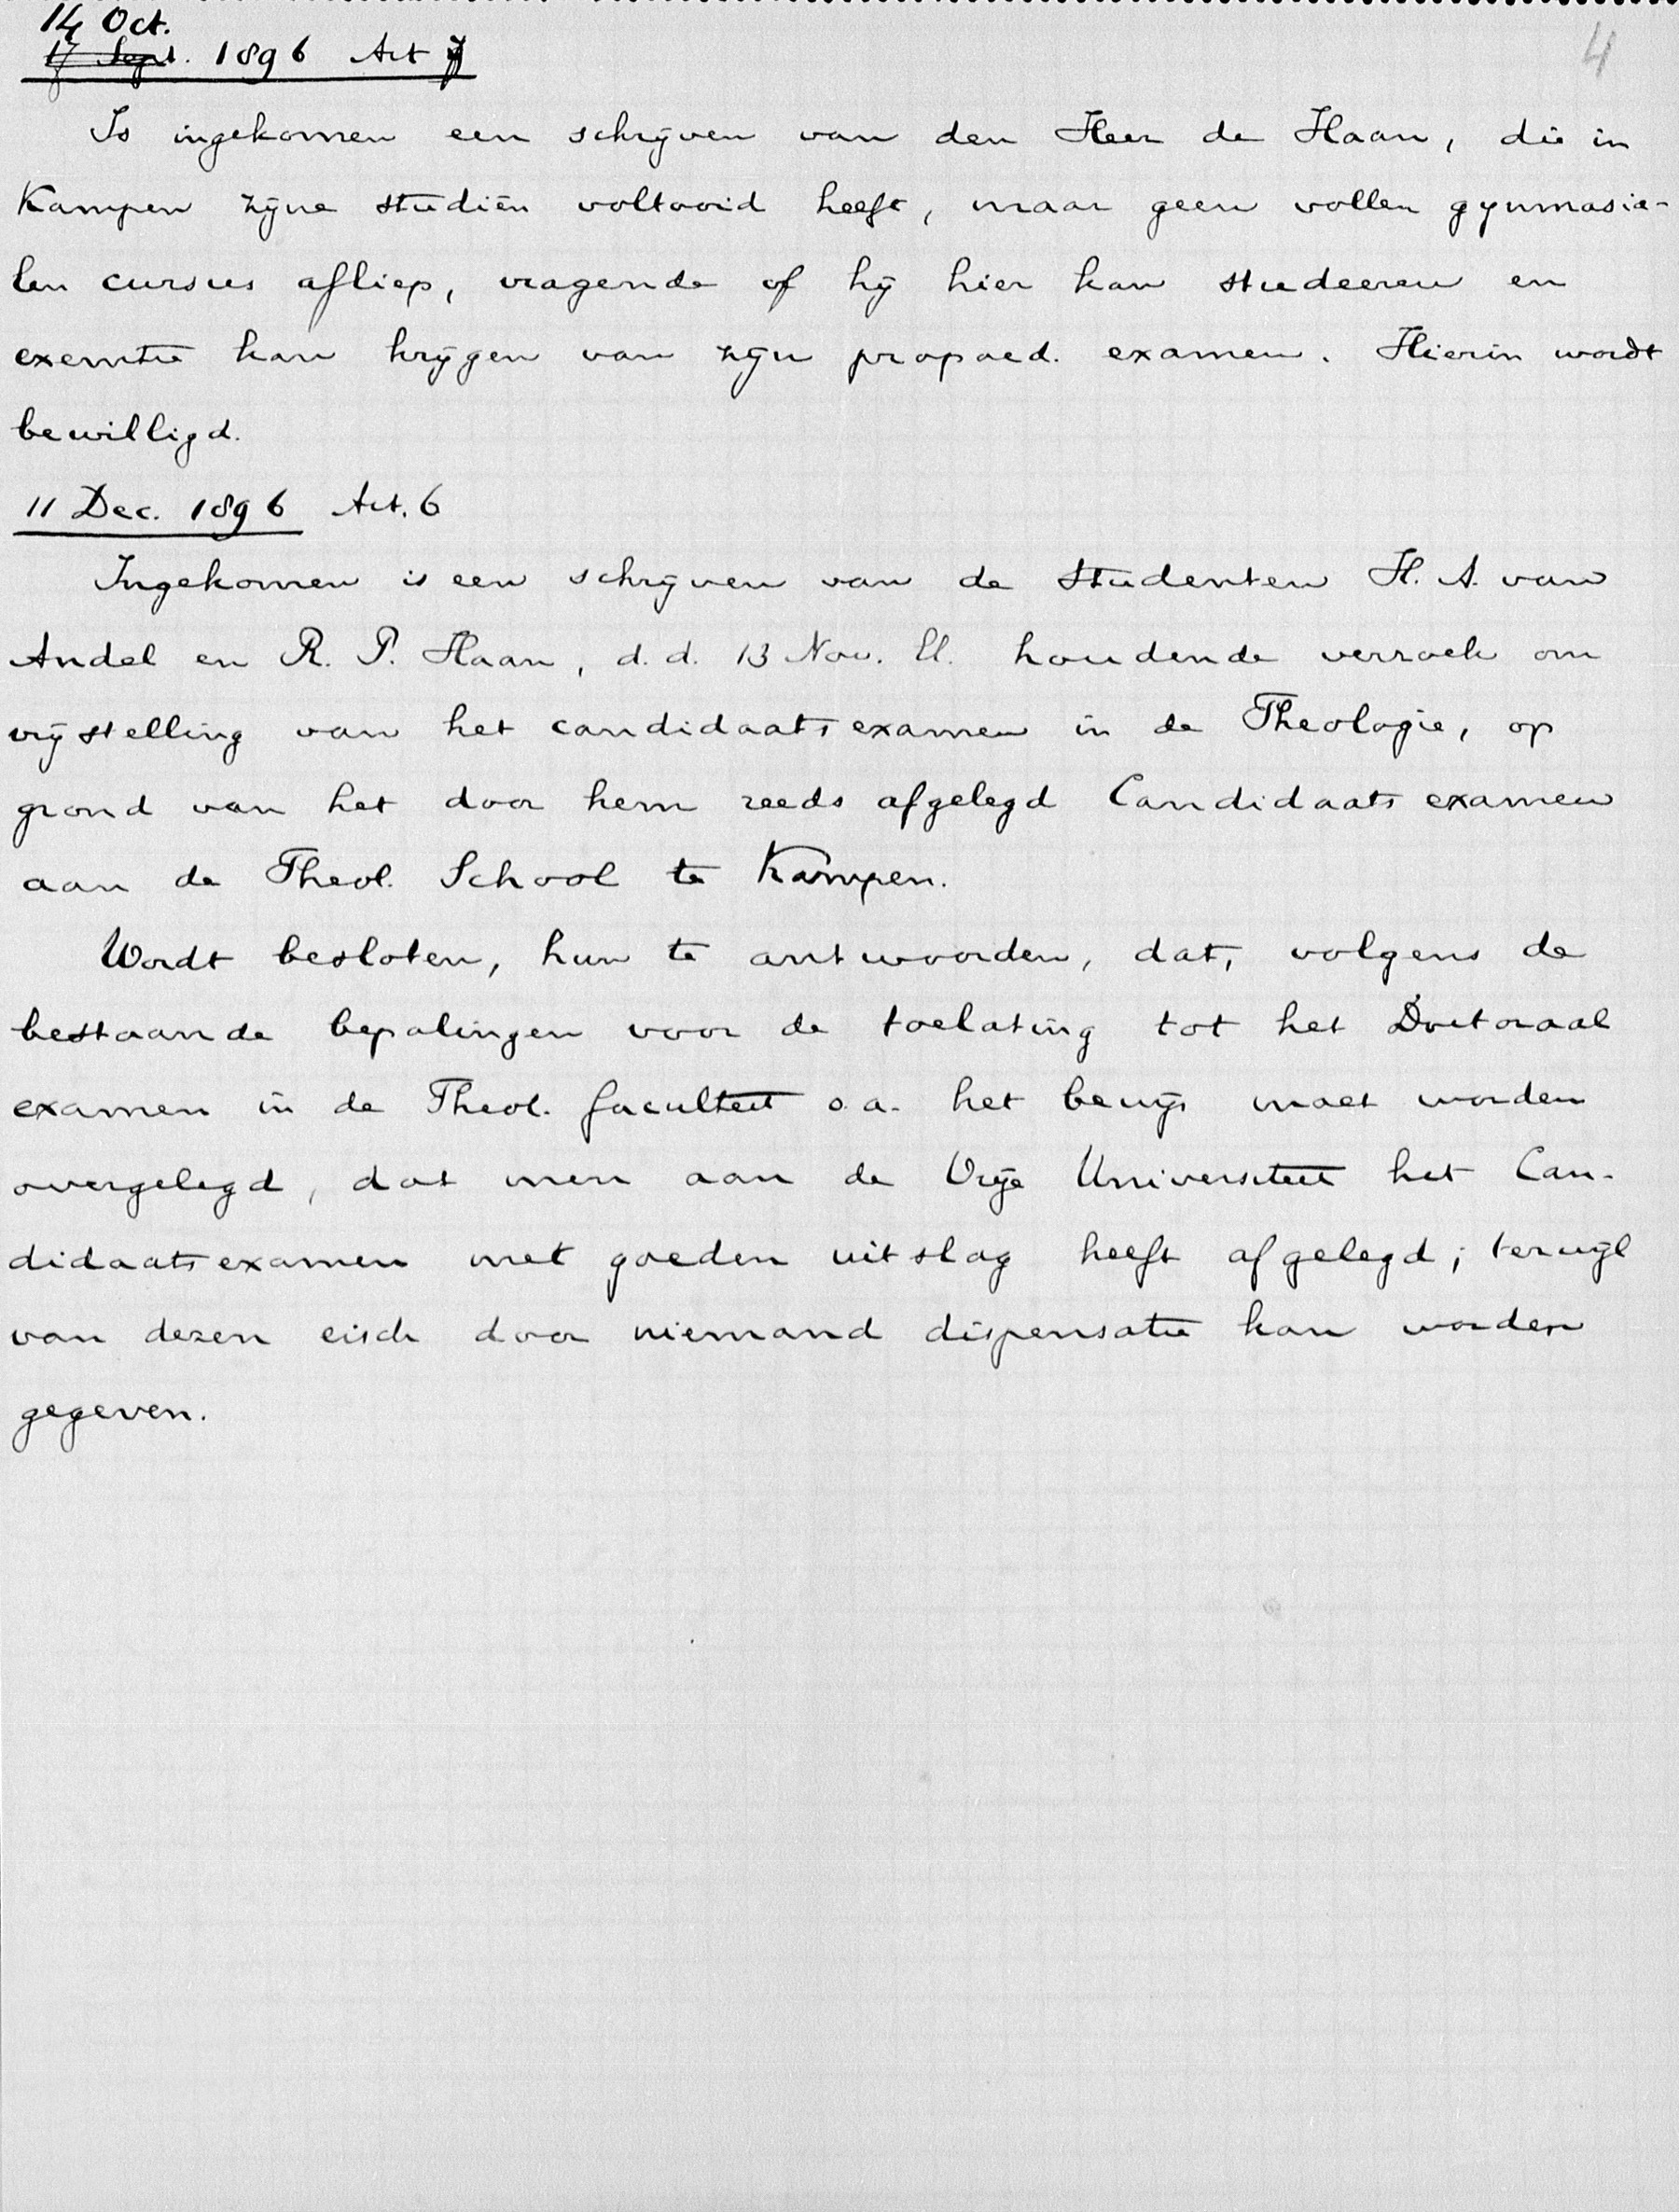 14 Oct.
17 Sept. 1896 Art 7
4
Is ingekomen een schrijven van den Heer de Haan, die in
Kampen zijne studiën voltooid heeft, maar geen vollen gymnasia-
len cursus afliep, vragende of hij hier kan studeeren en
exemtie kan krijgen van zijn propaed. examen. Hierin wordt
bewilligd.
11 Dec. 1896 Art. 6
Ingekomen is een schrijven van de studenten H. A. van
Andel en R. P. Haan, d.d. 13 Nov. ll. houdende verzoek om
vrijstelling van het candidaatsexamen in de Theologie, op
grond van het door hem reeds afgelegd Candidaats examen
aan de Theol. School te Kampen.
Wordt besloten, hun te antwoorden, dat, volgens de
bestaande bepalingen voor de toelating tot het Doctoraal
examen in de Theol. faculteit o.a. het bewijs moet worden
overgelegd, dat men aan de Vrije Universiteit het Can-
didaatsexamen met goeden uitslag heeft afgelegd; terwijl
van dezen eisch door niemand dispensatie kan worden
gegeven.